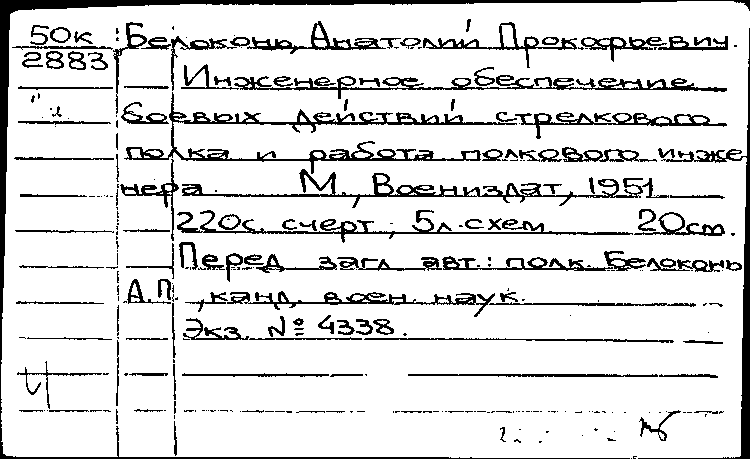 50к Белоконь, Анатолий Прокофьевич.
2883
Инженерное обеспечение
боевых действий стрелкового
полка и работа полкового инже
нера М., Воениздат, 1951
220с. счерт; 5л.схем 20см.
Перед загл. авт.: полк. Белоконь
А.П., канд. воен. наук.
Экз. № 4338.